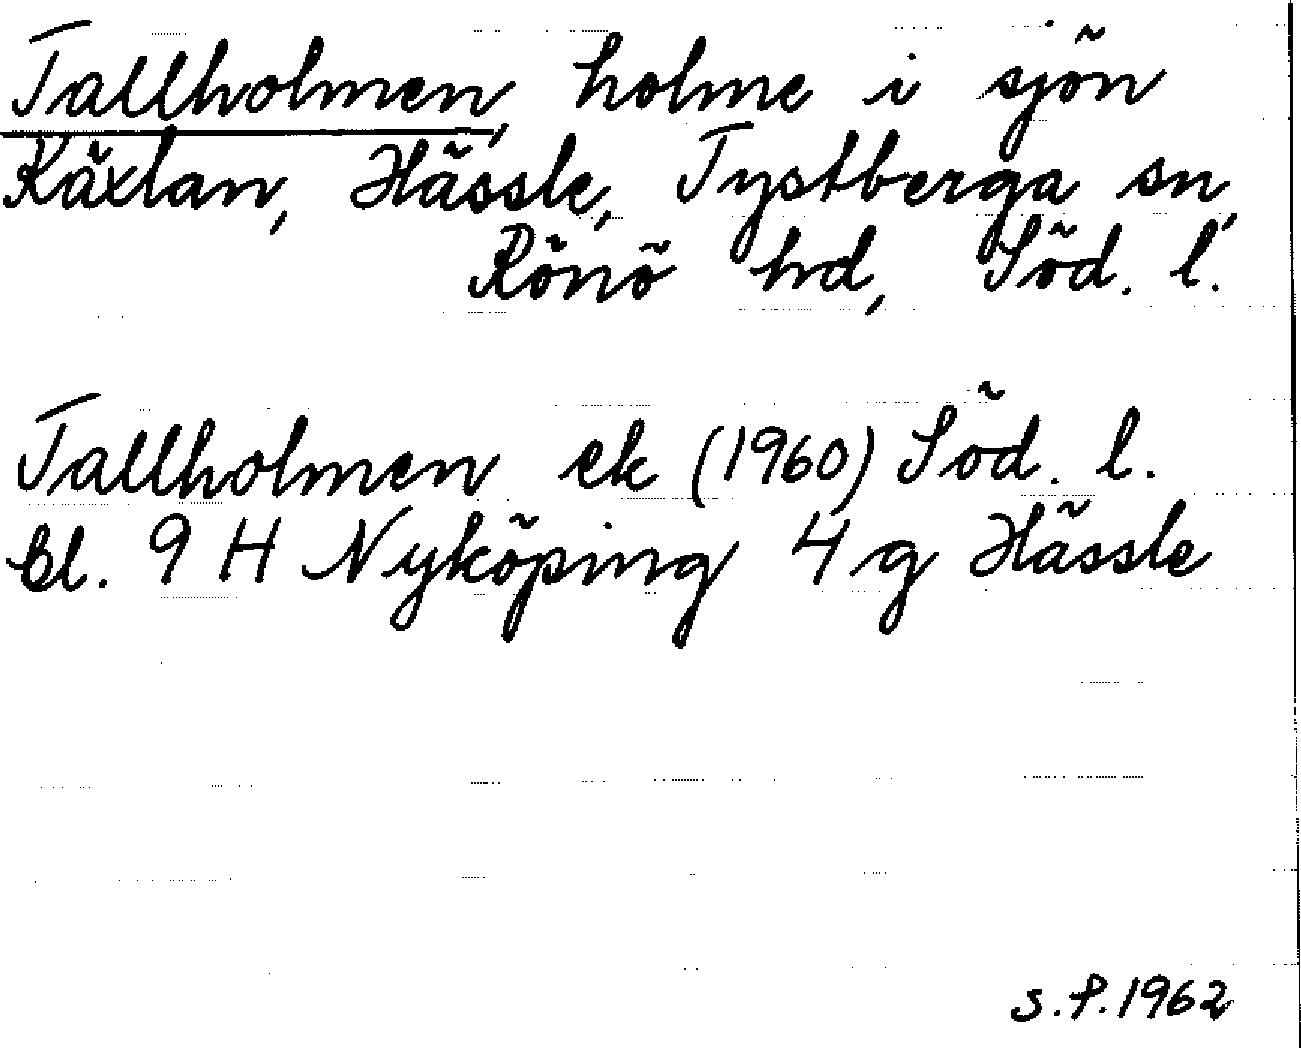 Tallholmen, holme i sjön
Käxlan, Hässle, Tystberga sn,
Rönö hd, Söd. l.
Tallholmen ek (1960) Söd. l.
bl. 9 H Nyköping 4 g Hässle
S.P. 1962